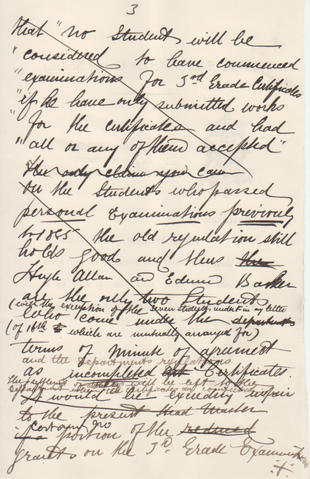 3
that "no Student will be
"considered to have commenced
"examinations for 3rd Grade Certificates
"if he have only submitted works
"for the certificate and had
"all or any of them accepted"
The only claim you can
on the Students who passed
personal Examinations previously
to 1885 the old regulation still
holds good and thus the
Hugh Allan and Edward Barker
are the only two Students
(with the exception of the seven Students in my letter
(of 16th which are mutually arranged for)
who come under the
terms of Minute of agreement
and the Departments
as incompleted Certificates.
will be left to the
It would be exceedingly unfair
to the present Head Master
portion of the reduced
grants on the 3rd Grade Examination